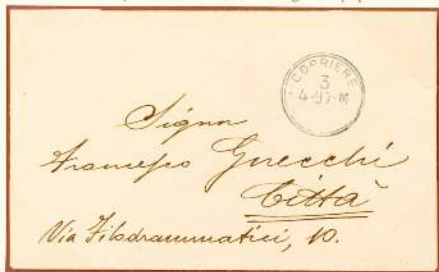 CORRIERE
3
4-97-M
Signor
Francesco Gnecchi
Città
Via Filodrammatici, 10.